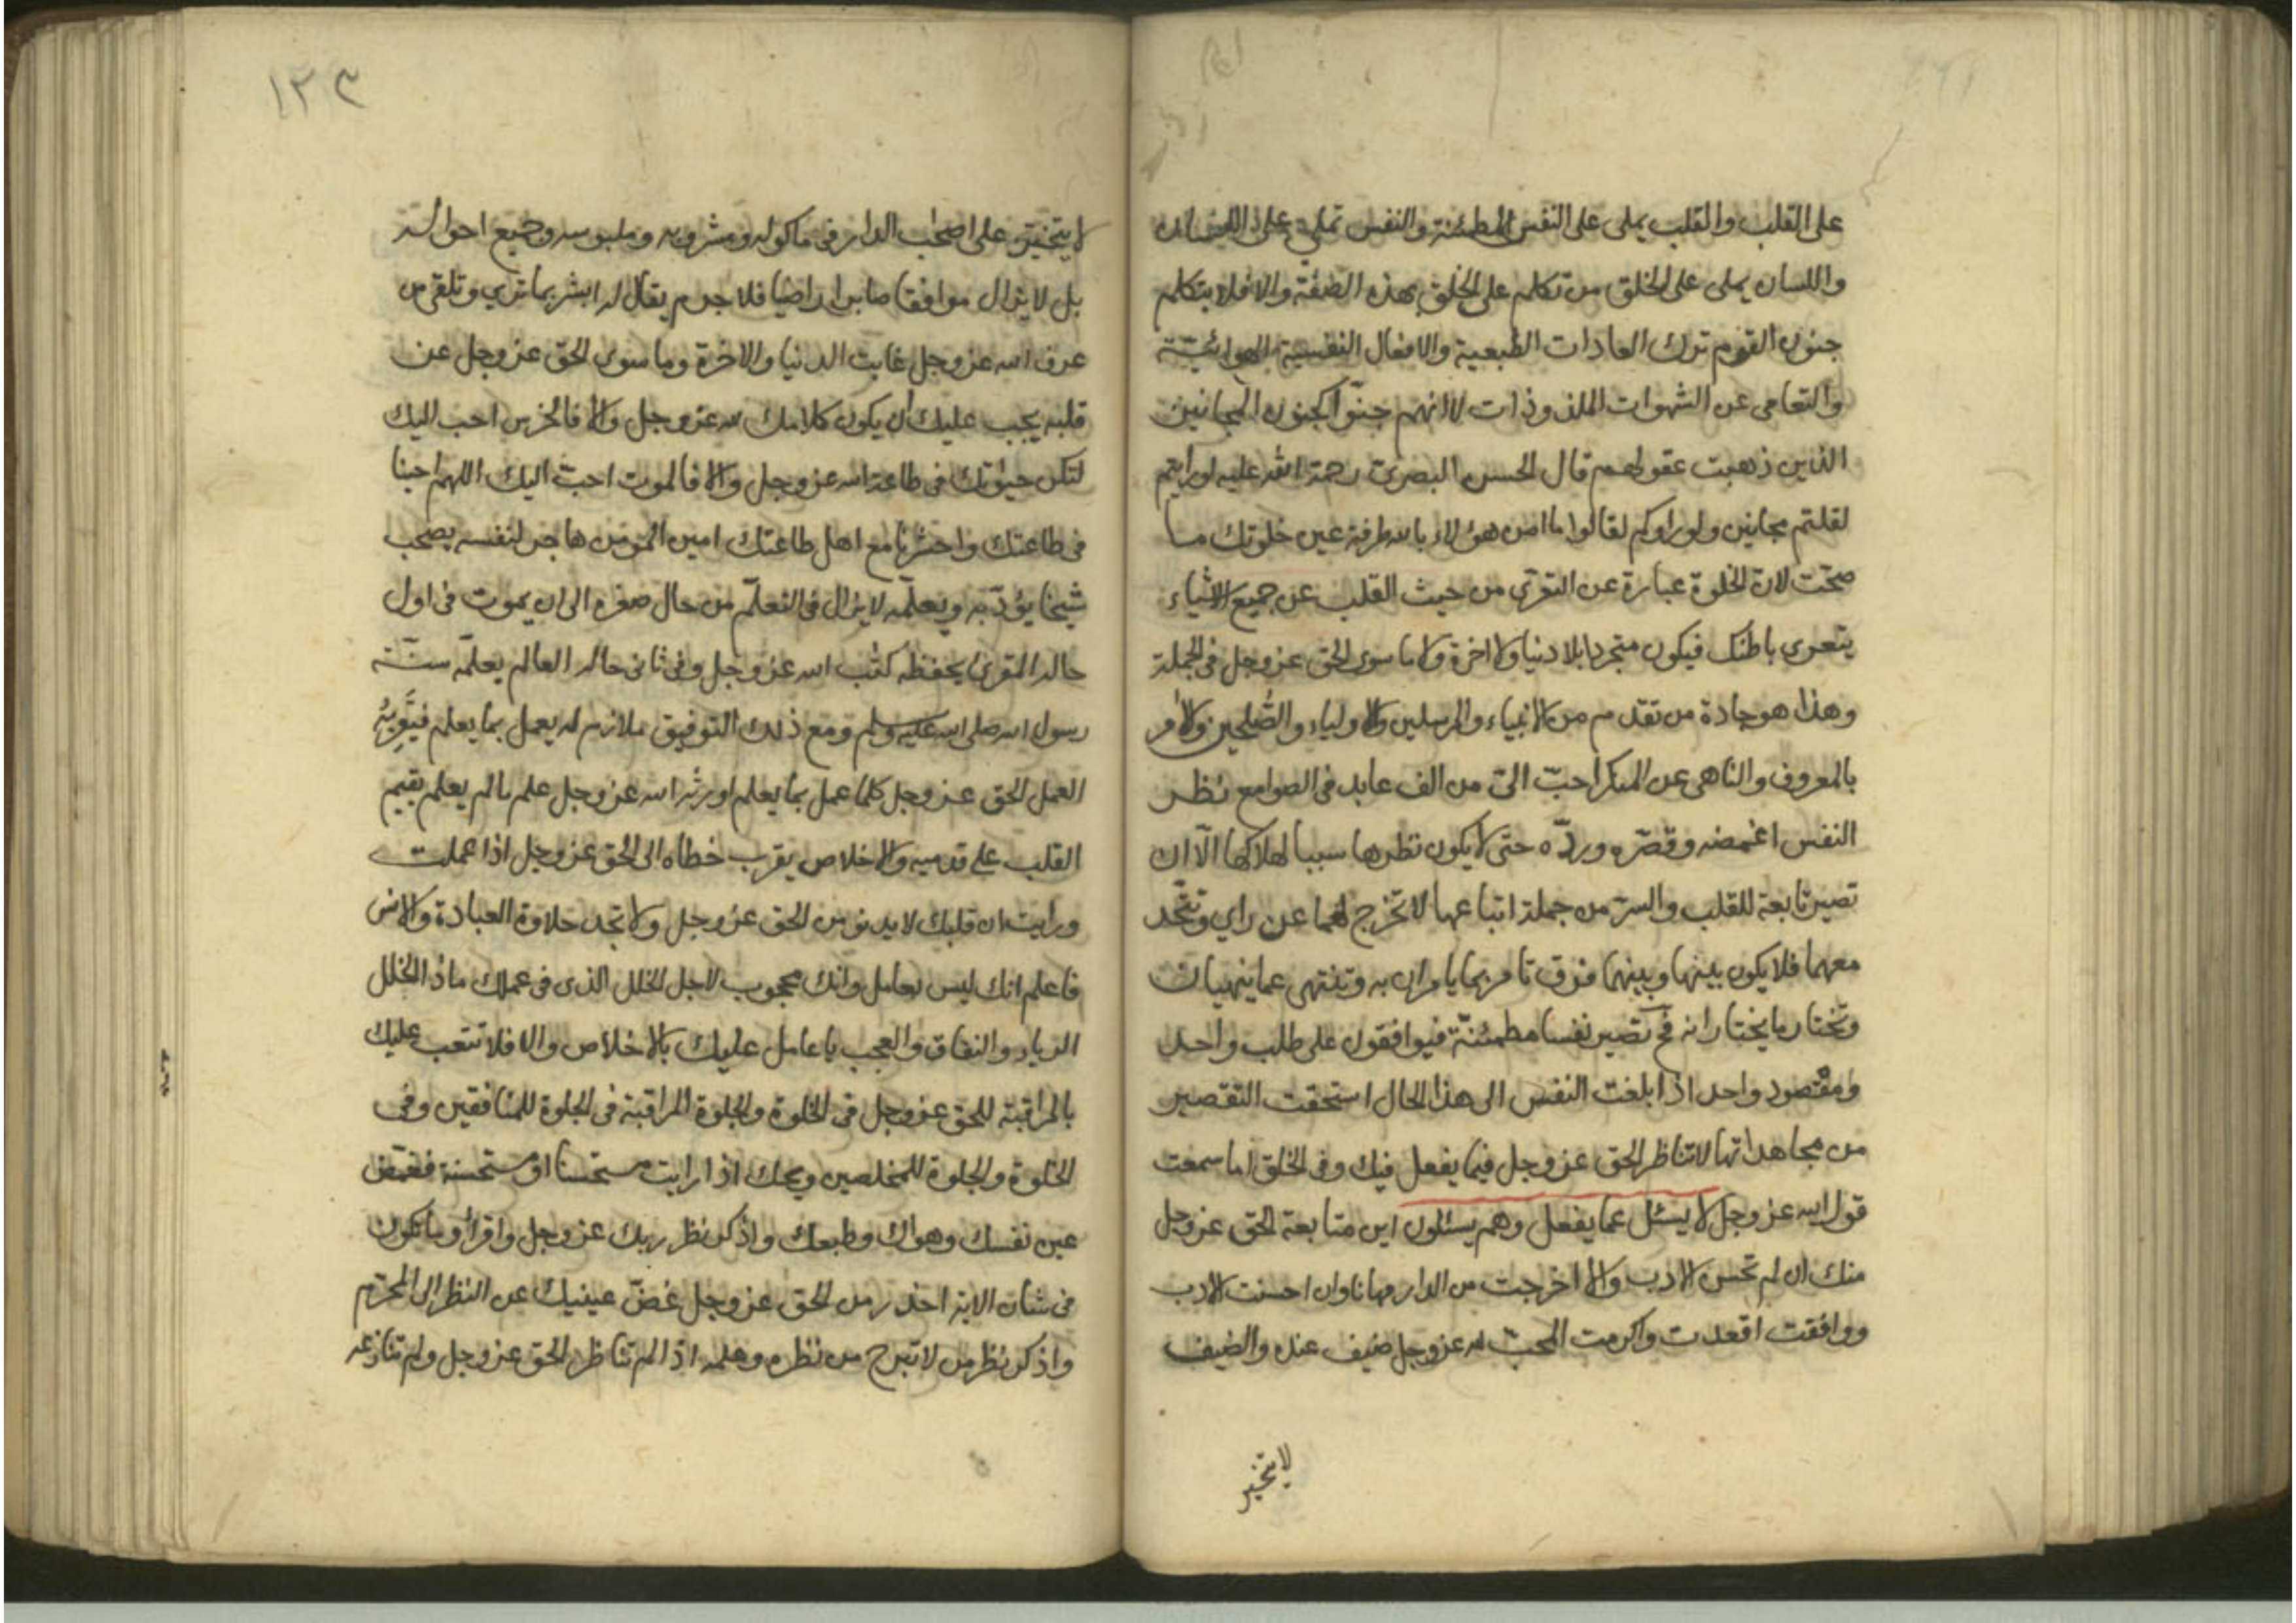 على القلب والقلب يملى على النفس المطمئنة والنفس تملى على اللسان
واللسان يملى على الخلق من تكلم على الخلق بهذه الصفة والا فلا يتكلم
جنون القوم ترك العادات الطبعية والافعال النفسية الهوائية
والتعامى عن الشهوات الملذوذات لا انهم جنوا كجنون المجانين
الذين ذهبت عقولهم قال الحسن البصرى رحمة الله عليه لو رايتم
لقلتم مجانين ولو راوكم لقالوا ما امن هؤلاء بالله طرفة عين خلوتك ما
صحت لان الخلوة عبارة عن التعرى من حيث القلب عن جميع الاشياء
يتعرى باطنك فيكون متجردا بلا دنيا ولا اخرة ولا ما سوى الحق عز وجل فى الجملة
وهذا هو جادة من تقدم من الانبياء والمرسلين والاولياء والصلحين والامر
بالمعروف والناهى عن المنكر احب الى من الف عابد فى الصوامع نظر
النفس اغمضه وقصره ورده حتى لا يكون نظرها سببا لهلاكها الا ان
تصير تابعة للقلب والسر من جملة اتباعها لا تخرج لهما عن راى وتتحد
معهما فلا يكون بينها وبينهما فرق تامر بما يامران به وتنتهى عما ينهيان
وتختار ما يختارانه فح تصير نفسا مطمئنة فيوافقون على طلب واحد
ومقصود واحد اذا بلغت النفس الى هذا الحال استحقت التقصير
من مجاهداتها لا تناظر الحق عز وجل فيما يفعل فيك وفى الخلق اما سمعت
قول الله عز وجل لا يسئل عما يفعل وهم يسئلون اين متابعة الحق عز وجل
منك ان لم تحسن الادب والا اخرجت من الدار مهانا وان احسنت الادب
ووافقت اقعدت واكرمت المحب لله عز وجل ضيف عنده والضيف
لا يتخير
١٢٣
لا يتخير على اصحب الدار فى ماكوله ومشروبه وملبوسه وجميع احواله
بل لا يزال موافقا صابرا راضيا فلا جرم يقال له ابشر بما ترى وتلقى من
عرف الله عز وجل غابت الدنيا والاخرة وما سوى الحق عز وجل عن
قلبه يجب عليك ان يكون كلامك لله عز وجل والا فالخرس احب اليك
لتكن حيوتك فى طاعة الله عز وجل والا فالموت احب اليك اللهم احينا
فى طاعتك واحشرنا مع اهل طاعتك امين المومن هاجر لنفسه يصحب
شيخا يؤدبه ويعلمه لا يزال فى التعلم من حال صغره الى ان يموت فى اول
حاله المقرئ يحفظه كتب الله عز وجل وفى ثانى حاله العالم يعلمه سنة
رسول الله صلى الله عليه وسلم ومع ذلك التوفيق ملازم له يعمل بما يعلم فيقربه
العمل الحق عز وجل كلما عمل بما يعلم اورثه الله عز وجل علم ما لم يعلم يقيم
القلب على قدميه والاخلاص يقرب خطاه الى الحق عز وجل اذا عملت
ورايت ان قلبك لا يدنو من الحق عز وجل ولا تجد حلاوة العبادة والانس
فاعلم انك ليس بعامل وانك محجوب لاجل الخلل الذى فى عملك ماذا الخلل
الرياء والنفاق والعجب يا عامل عليك بالاخلاص والا فلا تتعب عليك
بالمراقبة للحق عز وجل فى الخلوة والجلوة المراقبة فى الجلوة للمنافقين وفى
الخلوة والجلوة للمخلصين ويحك اذا رايت مستحسنا او مستحسنة فغمض
عين نفسك وهواك وطبعك واذكر نظر ربك عز وجل واقرأ وما تكون
فى شان الاية احذر من الحق عز وجل غض عينيك عن النظر الى المحرم
واذكر نظر من لا تبرح من نظره وعلمه اذا لم تناظر الحق عز وجل ولم تنازعه